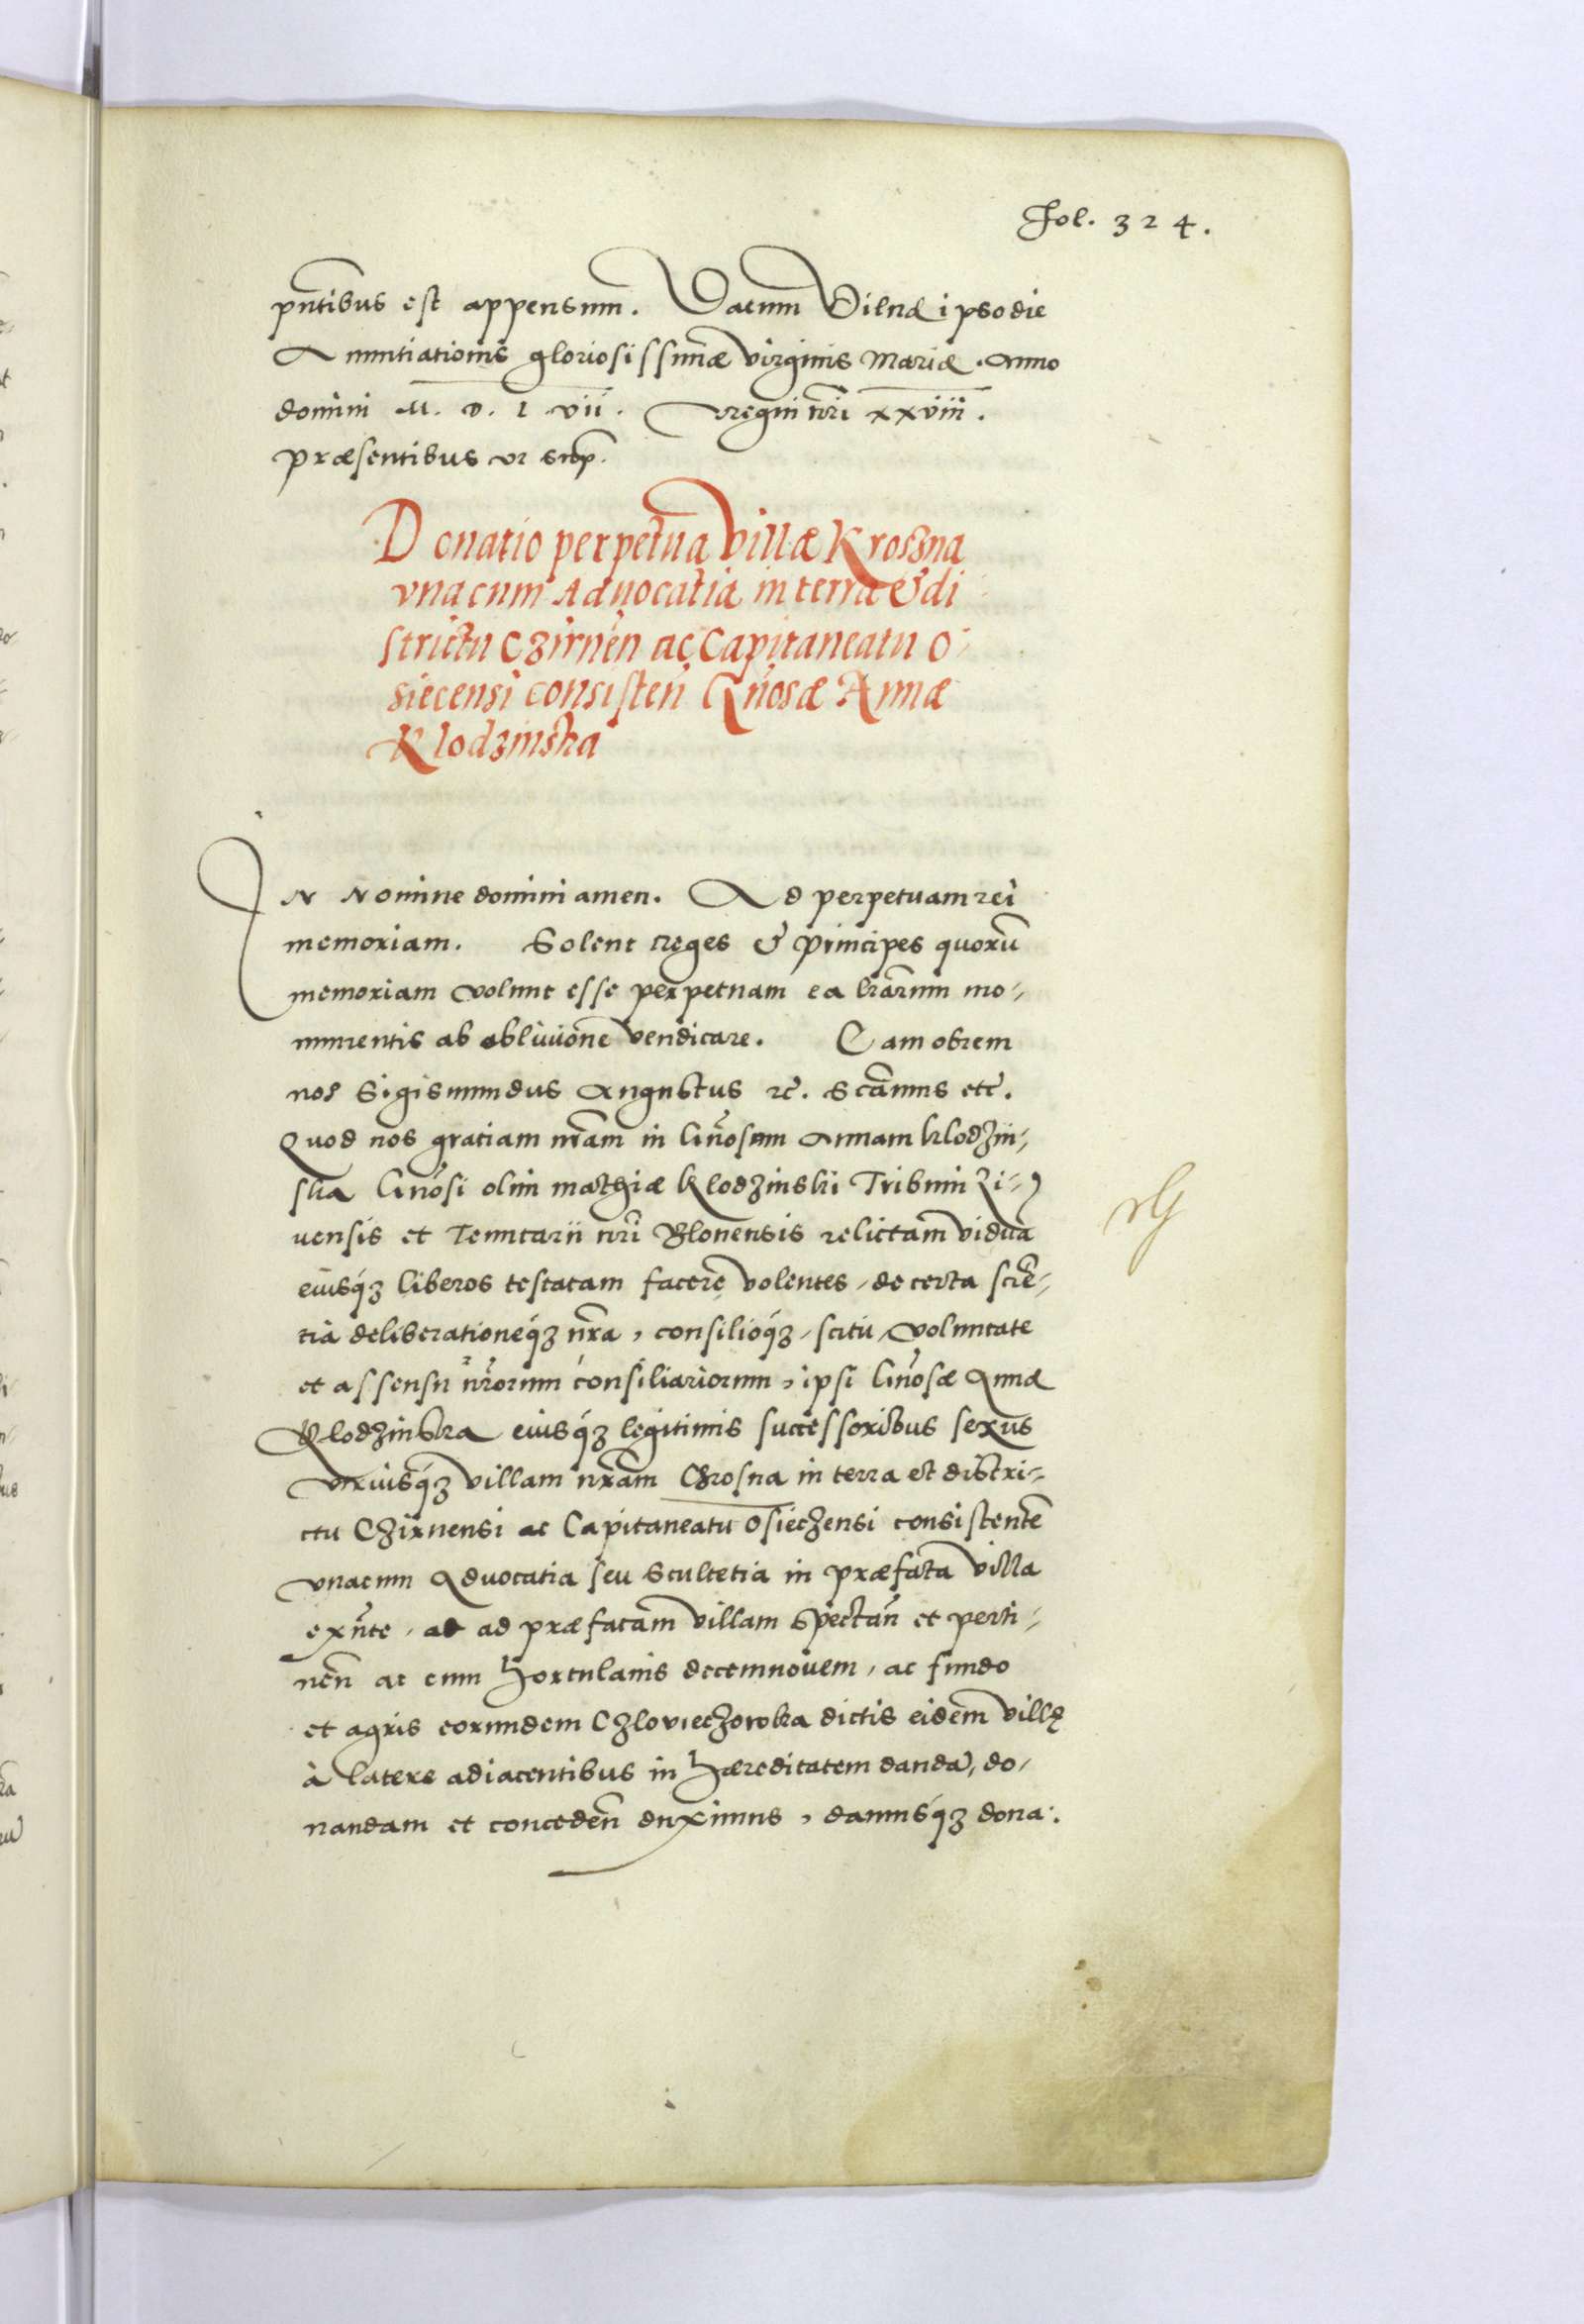 Fol. 324.
pñtibus est appensum. Datum Vilnæ ipso die
Anuntiationis gloriosissimæ virginis Mariæ. Anno
domini M. D. L vii. regni nri xxviii.
præsentibus vt sup.
Donatio perpetua Villæ Kroszna
vna cum Aduocatia in terra & di
strictu Czirnen ac Capitaneatu O-
siecensi consisten Gnosæ Annæ
Klodzinska
IN Nomine domini amen. Ad perpetuam rei
memoriam. Solent reges & principes quorū
memoriam volunt esse perpetuam ea lrarum mo-
numentis ab obliuione vendicare. Eam obrem
nos Sigismundus Augustus rc. Scamus etc.
Quod nos gratiam nram in Gnosam Annam Klodzin-
ska Gnosi olim Mathiæ Klodzinski Tribuni Zi-
uensis et Tenutarii nri Blonensis relictam viduā
eiusq́ʒ liberos testatam facere volentes, de certa sciē-
tia deliberationeq́ʒ nra, consilioq́ʒ, scitu, voluntate
et assensu nrorum consiliariorum, ipsi Gnosæ Annæ
Klodzinska eiusq́ʒ legitimis successoribus sexus
vtriusq́ʒ villam nram Chrosna in terra et distri-
ctu Czirnensi ac Capitaneatu Osieczensi consistentē
vnacum Aduocatia seu Scultetia in præfata villa
exñte, ac ad præfatam villam spectañ et perti-
neñ ac cum hortulanis decemnouem, ac fundo
et agris eorundem Czlowieczowska dictis eidem villę
à latere adiacentibus in hæreditatem dandā, do-
nandam et concedeñ duximus, damusq́ʒ dona-